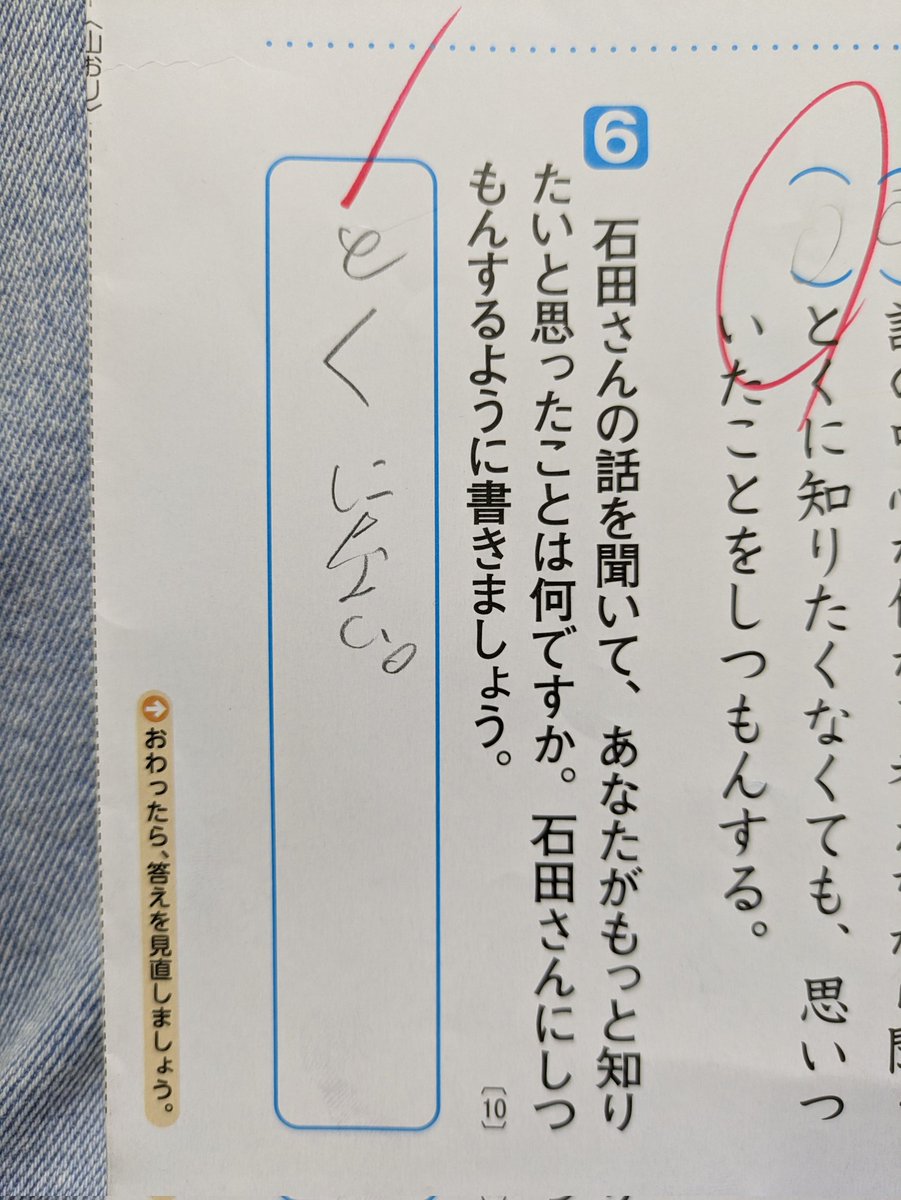 とくに知りたくなくても、思いつ
いたことをしつもんする。
6 石田さんの話を聞いて、あなたがもっと知り
たいと思ったことは何ですか。石田さんにしつ
もんするように書きましょう。
〔10〕
とくにない。
おわったら、答えを見直しましょう。
〈山おり〉